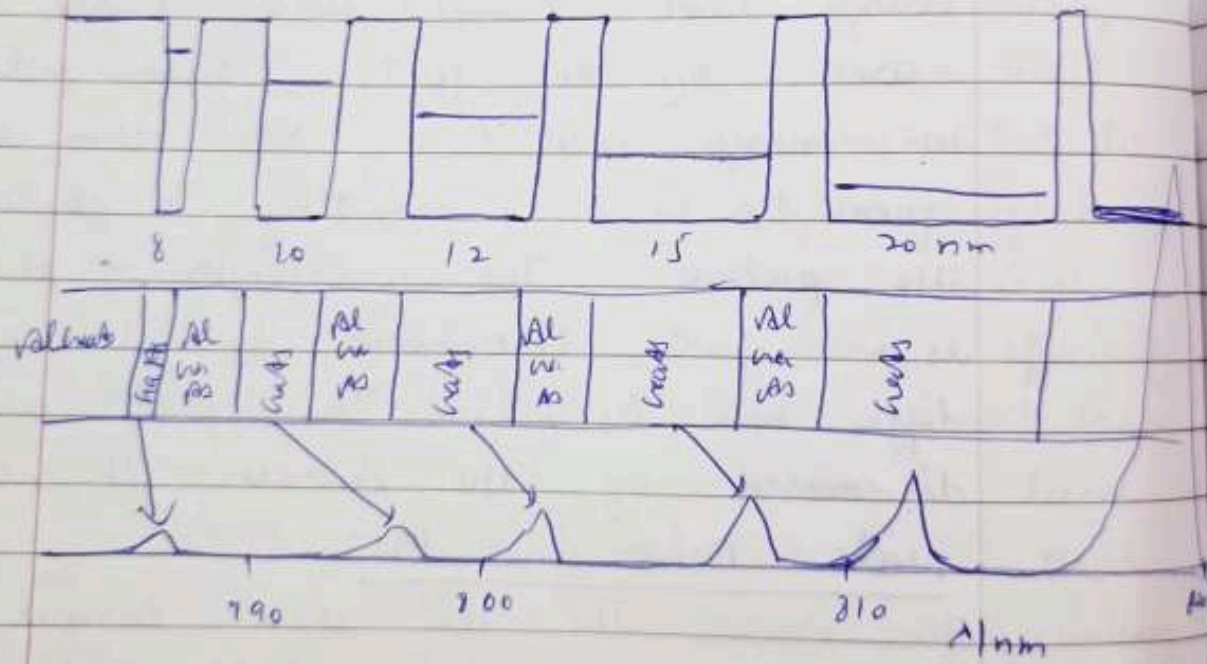 8 10 12 15 20 nm
GaAs Al Ga As GaAs Al Ga As GaAs Al Ga As GaAs Al Ga As GaAs
790 800 810 λ/nm